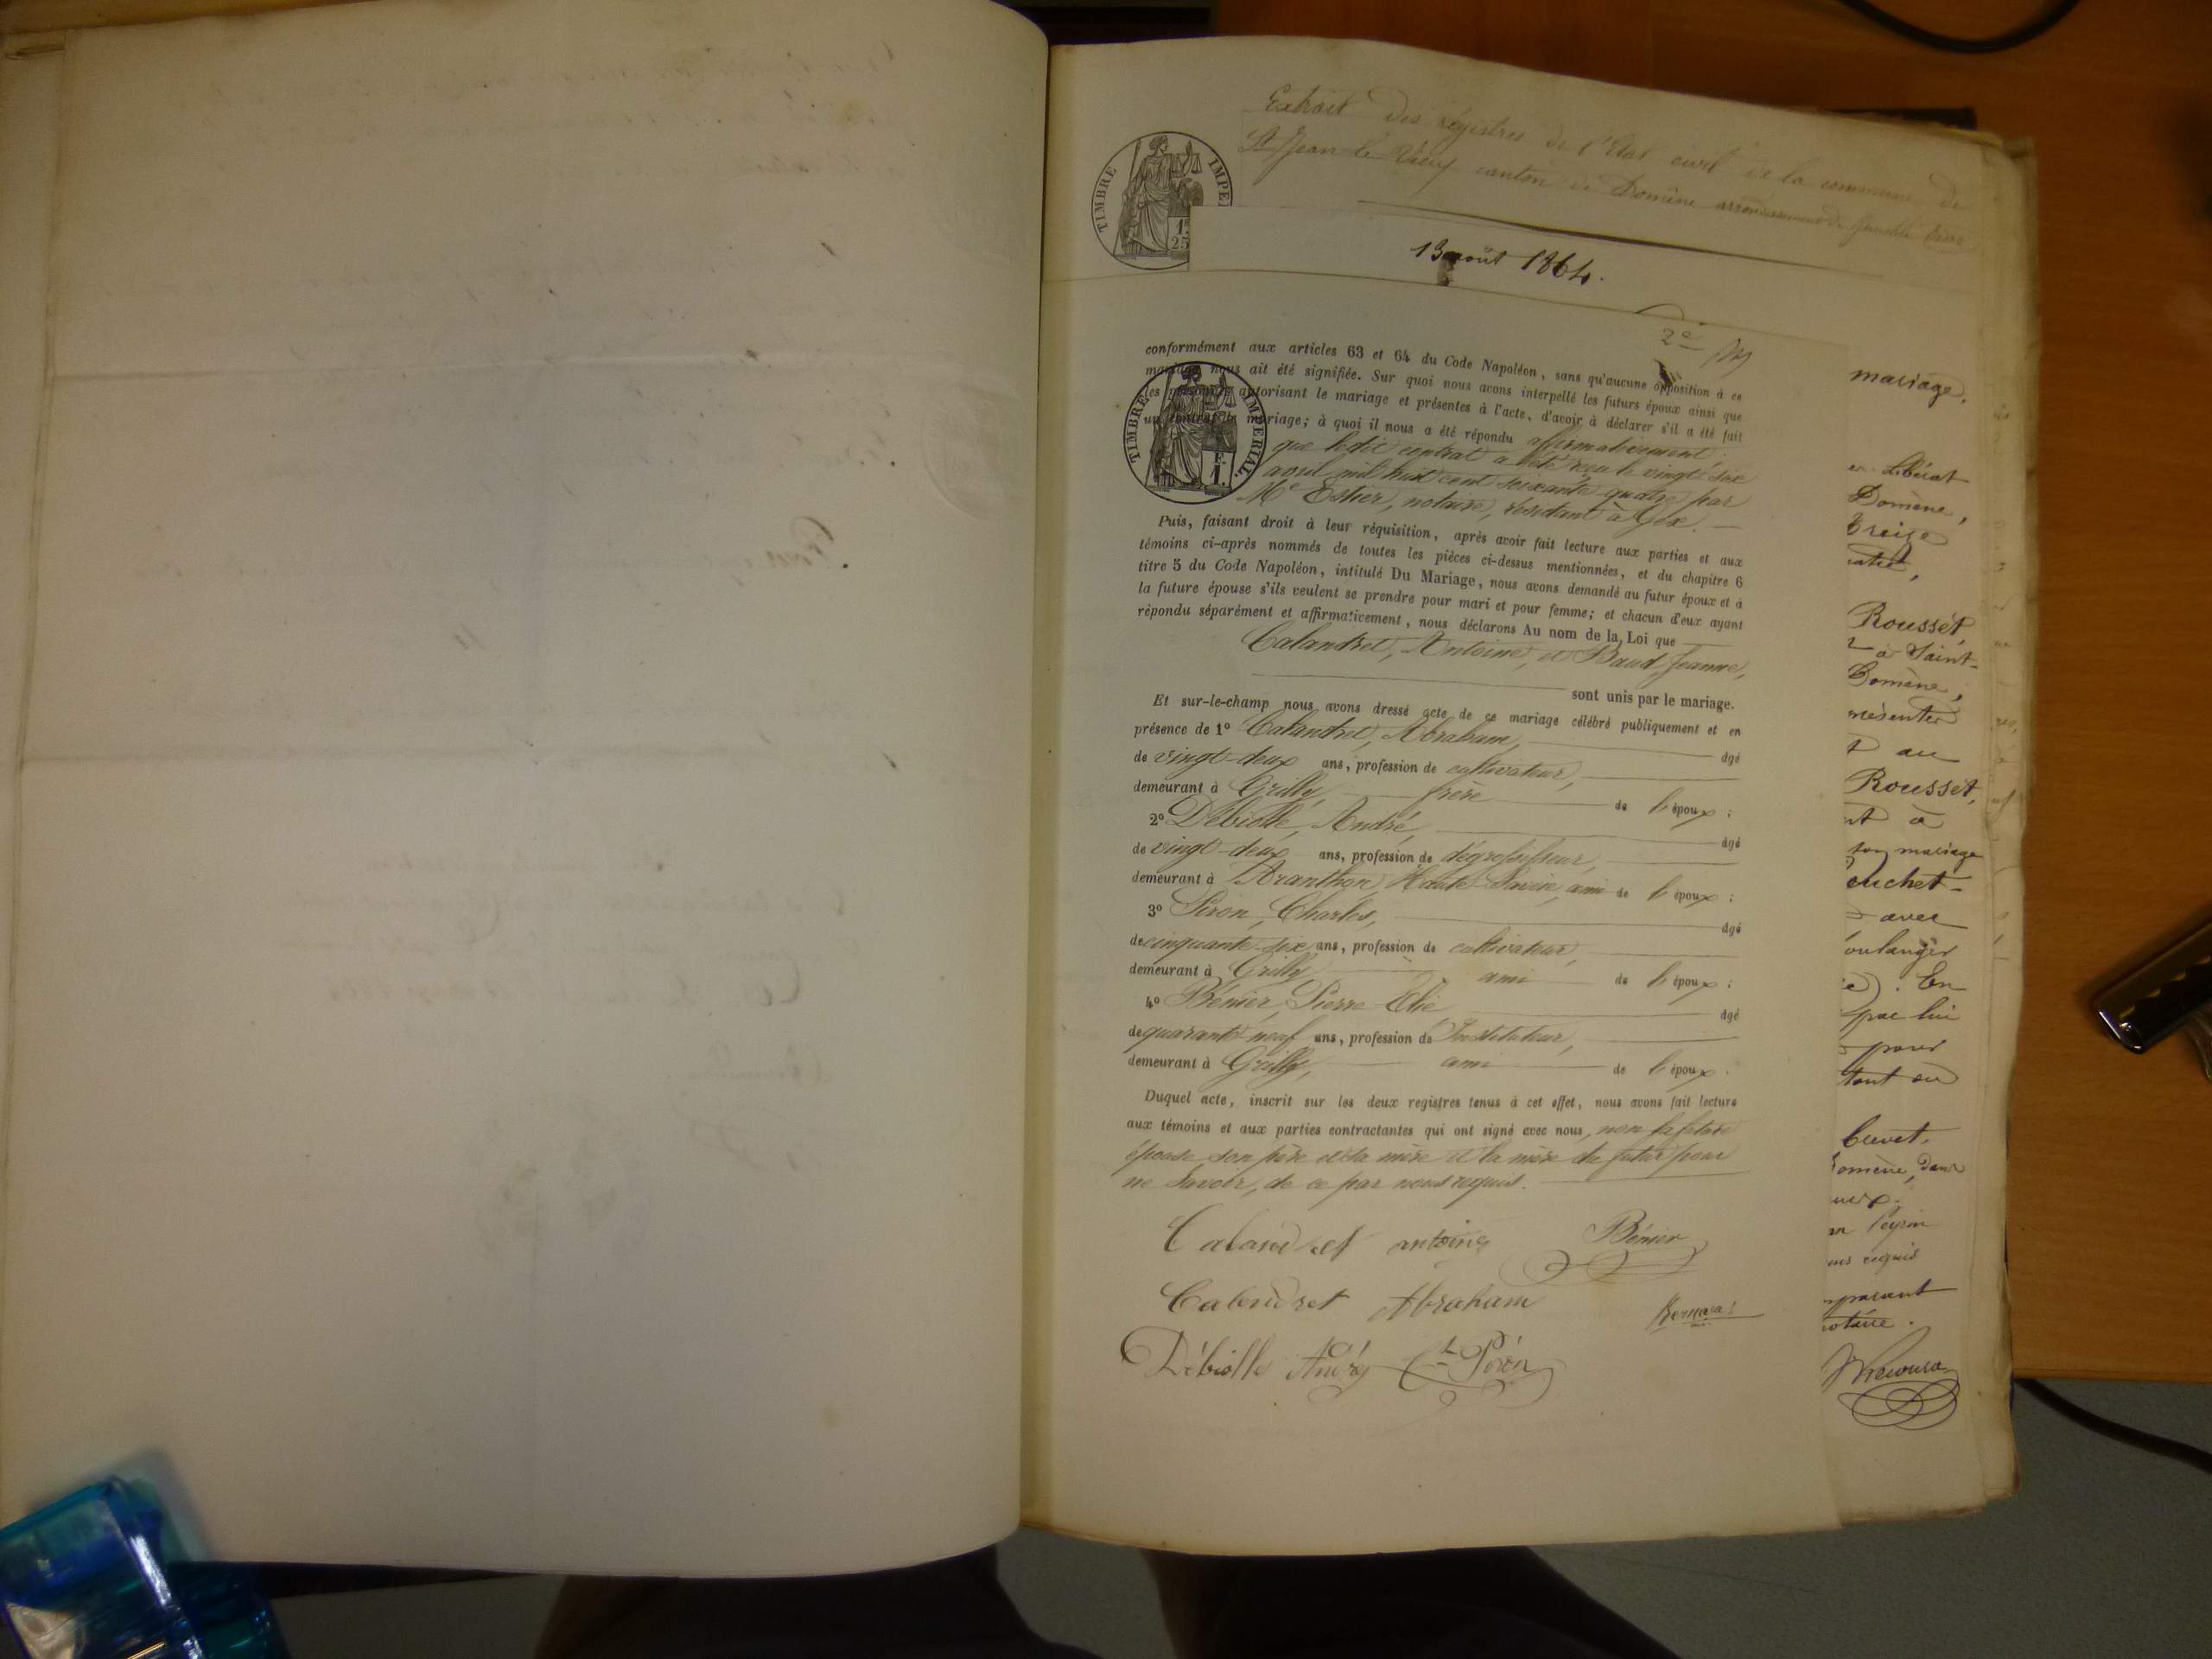 Extrait des registres de l'Etat civil de la commune de
St Jean le Vieux canton de Domène arrondissement de Grenoble Isère
TIMBRE IMPE
1.
25
13 août 1864.
2e
conformément aux articles 63 et 64 du Code Napoléon, sans qu'aucune opposition à ce
mariage nous ait été signifiée. Sur quoi nous avons interpellé les futurs époux ainsi que
les personnes autorisant le mariage et présentes à l'acte, d'avoir à déclarer s'il a été fait
un contrat de mariage; à quoi il nous a été répondu affirmativement
que ledit contrat a été reçu le vingt six
avril mil huit cent soixante quatre par
Me Estier, notaire, résidant à Gex.
TIMBRE IMPERIAL.
F.
1.
Puis, faisant droit à leur réquisition, après avoir fait lecture aux parties et aux
témoins ci-après nommés de toutes les pièces ci-dessus mentionnées, et du chapitre 6
titre 5 du Code Napoléon, intitulé Du Mariage, nous avons demandé au futur époux et à
la future épouse s'ils veulent se prendre pour mari et pour femme; et chacun d'eux ayant
répondu séparément et affirmativement, nous déclarons Au nom de la Loi que
Calandret, Antoine, et Baud, Jeanne,
sont unis par le mariage.
Et sur-le-champ nous avons dressé acte de ce mariage célébré publiquement et en
présence de 1° Calandret, Abraham, âgé
de vingt-deux ans, profession de cultivateur,
demeurant à Grilly, frère de l'époux;
2° Débiolle, André, âgé
de vingt-deux ans, profession de dégrossisseur,
demeurant à Aranthon, Haute-Savoie, ami de l'époux;
3° Piron, Charles, âgé
de cinquante-six ans, profession de cultivateur,
demeurant à Grilly ami de l'époux;
4° Bénier, Pierre Elie âgé
de quarante neuf ans, profession de Instituteur,
demeurant à Grilly, ami de l'époux.
Duquel acte, inscrit sur les deux registres tenus à cet effet, nous avons fait lecture
aux témoins et aux parties contractantes qui ont signé avec nous, non la future
épouse son père et sa mère et la mère du futur pour
ne savoir, de ce par nous requis.
Calandret antoine Bénier
Calendret Abraham
Débiolle André Ch Pirón
mariage.
Libérat
Domène,
treize
Rousset,
à Saint-
Domène,
au
Rousset,
à
son mariage
avec
oulanger
. En
par lui
pour
tout ou
Cuvet.
omène, dans
requis
mparant
notaire.